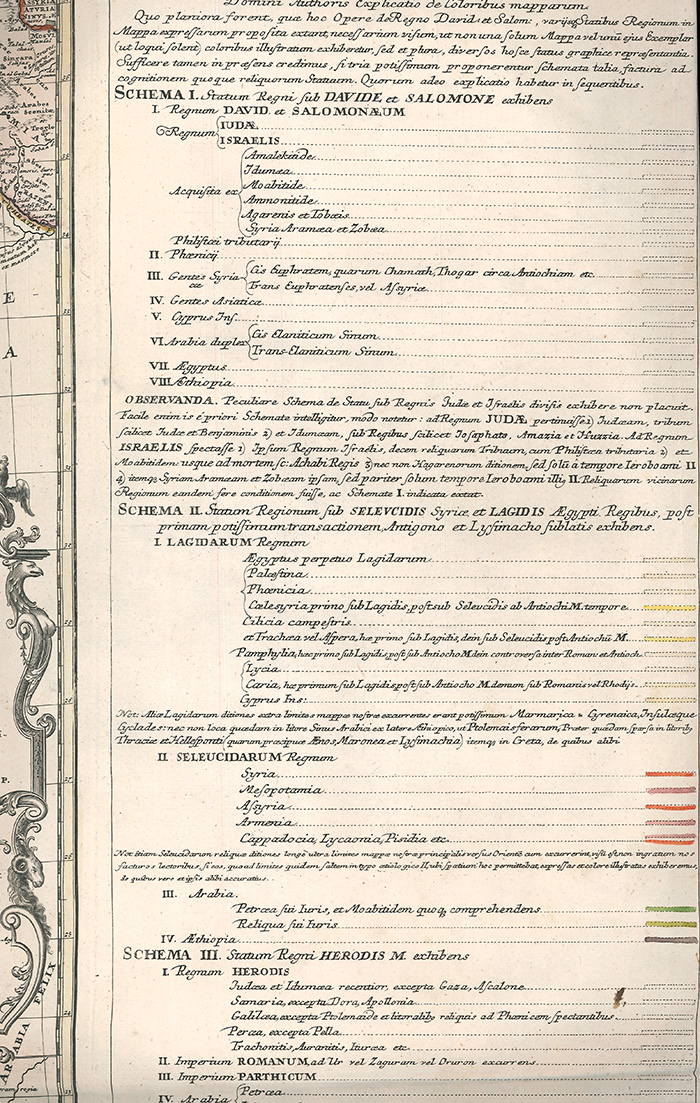 Domini Authoris Explicatio de Coloribus mapparum.
Quo planiora forent, quæ hoc Opere de Regno David. et Salom: , variisq; Statibus Regionum in
Mappa expressarum proposita extant, necessarium visum, ut non una solum Mappa vel unū ejus Exemplar
(ut loqui solent) coloribus illustratum exhiberetur, sed et plura, diversos hosce status graphice repræsentantia.
Sufficere tamen in præsens credimus, si tria potissimum proponerentur schemata talia, factura ad
cognitionem quoque reliquorum Statuum. Quorum adeo explicatio habetur in sequentibus.
SCHEMA I. Statum Regni sub DAVIDE et SALOMONE exhibens
I. Regnum DAVID. et SALOMONÆUM
Regnum IUDÆ
ISRAELIS
Acquisita ex
Amalekitide
Idumæa
Moabitide
Ammonitide
Agarenis et Tobæis
Syria Aramæa et Zobæa
Philistæi tributarij
II. Phœnicij
III. Gentes Syriacæ
Cis Euphratem, quarum Chamath, Thogar circa Antiochiam etc.
Trans Euphratenses, vel Assyriæ
IV. Gentes Asiaticæ
V. Cyprus Ins.
VI. Arabia duplex
Cis Elaniticum Sinum
Trans-Elaniticum Sinum
VII. Ægyptus
VIII. Æthiopia
OBSERVANDA. Peculiare Schema de Statu sub Regnis Iudæ et Israelis divisis exhibere non placuit.
Facile enim is è priori Schemate intelligitur, modo notetur: ad Regnum JUDÆ pertinuisse 1) Judæam, tribum
scilicet Iudæ et Benjaminis 2) et Idumæam, sub Regibus scilicet Iosaphato, Amazia et Huzzia. Ad Regnum
ISRAELIS spectasse 1) Ipsum Regnum Israelis, decem reliquarum Tribuum, cum Philistæa tributaria 2) et
Moabitidem usque ad mortem sc: Achabi Regis 3) nec non Hagarenorum ditionem, sed solū à tempore Ieroboami II
4) itemq; Syriam Aramæam et Zobæam ipsam, sed pariter solum tempore Ieroboami illiq II. Reliquarum vicinarum
Regionum eandem fere conditionem fuisse, ac Schemate I. indicata extat.
SCHEMA II. Statum Regionum sub SELEVCIDIS Syriæ, et LAGIDIS Ægypti Regibus, post
primam potissimum transactionem, Antigono et Lysimacho sublatis exhibens.
I. LAGIDARUM Regnum
Ægyptus perpetuo Lagidarum
Palæstina
Phœnicia
Cælesyria primo sub Lagidis, post sub Seleucidis ab Antiochi M. tempore
Cilicia campestris
et Trachæa vel Aspera, hæ primo sub Lagidis, dein sub Seleucidis post Antiochū M.
Pamphylia, hæc primo sub Lagidis, post sub Antiocho M. dein controversa inter Roman: et Antioch.
Lycia
Caria, hæ primum sub Lagidis, post sub Antiocho M. demum sub Romanis vel Rhodijs.
Cyprus Ins:
Not: Aliæ Lagidarum ditiones extra limites mappæ nostræ excurrentes erant potissimum Marmarica & Cyrenaica, Insulæque
Cyclades: nec non loca quædam in litore Sinus Arabici ex latere Æthiopico, ut Ptolemais ferarum, Præter quædam sparsa in litorib9
Thraciæ et Hellesponti (quarum præcipuæ Ænos, Maronea et Lysimachia) itemq; in Creta, de quibus alibi
II. SELEUCIDARUM Regnum
Syria
Mesopotamia
Assyria
Armenia
Cappadocia, Lycaonia, Pisidia etc.
facturos lectoribus, si eos, quoad limites quidem, saltem in typo
de quibus vero et ipsis alibi accuratius.
III. Arabia.
Petræa sui Iuris, et Moabitidem quoq; comprehendens
Reliqua sui Iuris
IV. Æthiopia
SCHEMA III. Statum Regni HERODIS M. exhibens
I. Regnum HERODIS
Iudæa et Idumæa recentior, excepta Gaza, Ascalone
Samaria, excepta Dora, Apollonia
Galilæa, excepta Ptolemaide et litoralib9 reliquis ad Phœnicem spectantibus
Peræa, excepta Pella
Trachonitis, Auranitis, Ituræa etc
II. Imperium ROMANUM, ad Ur vel Zaguram vel Oruron excurrens
III. Imperium PARTHICUM
IV. Arabia
Petræa
E
A
P.
ARABIA FELIX